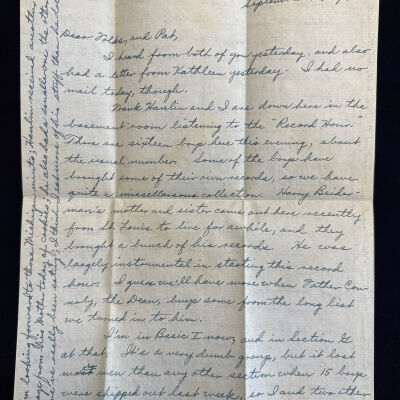 Dear Folks, and Pat,
I heard from both of you yesterday, and also
had a letter from Kathleen yesterday. I had no
mail today, though.
Frank Hanlin and I are down here in the
basement room listening to the "Record Hour."
There are sixteen boys here this evening, about
the usual number. Some of the boys have
brought some of their own records, so we have
quite a miscellaneous collection. Harry Beider-
man's mother and sister came out here recently
from St. Louis to live for awhile, and they
brought a bunch of his records. He was
largely instrumental in starting this record
hour. I guess we'll have more when Father Con-
noly, the Dean, buys some from the long list
we turned in to him.
I'm in Basic I now, and in Section
at that. It's a very dumb group, but it lost
most men than any other section when 15 boys
were shipped out last week, so I and two other
looking forward to those Michigan